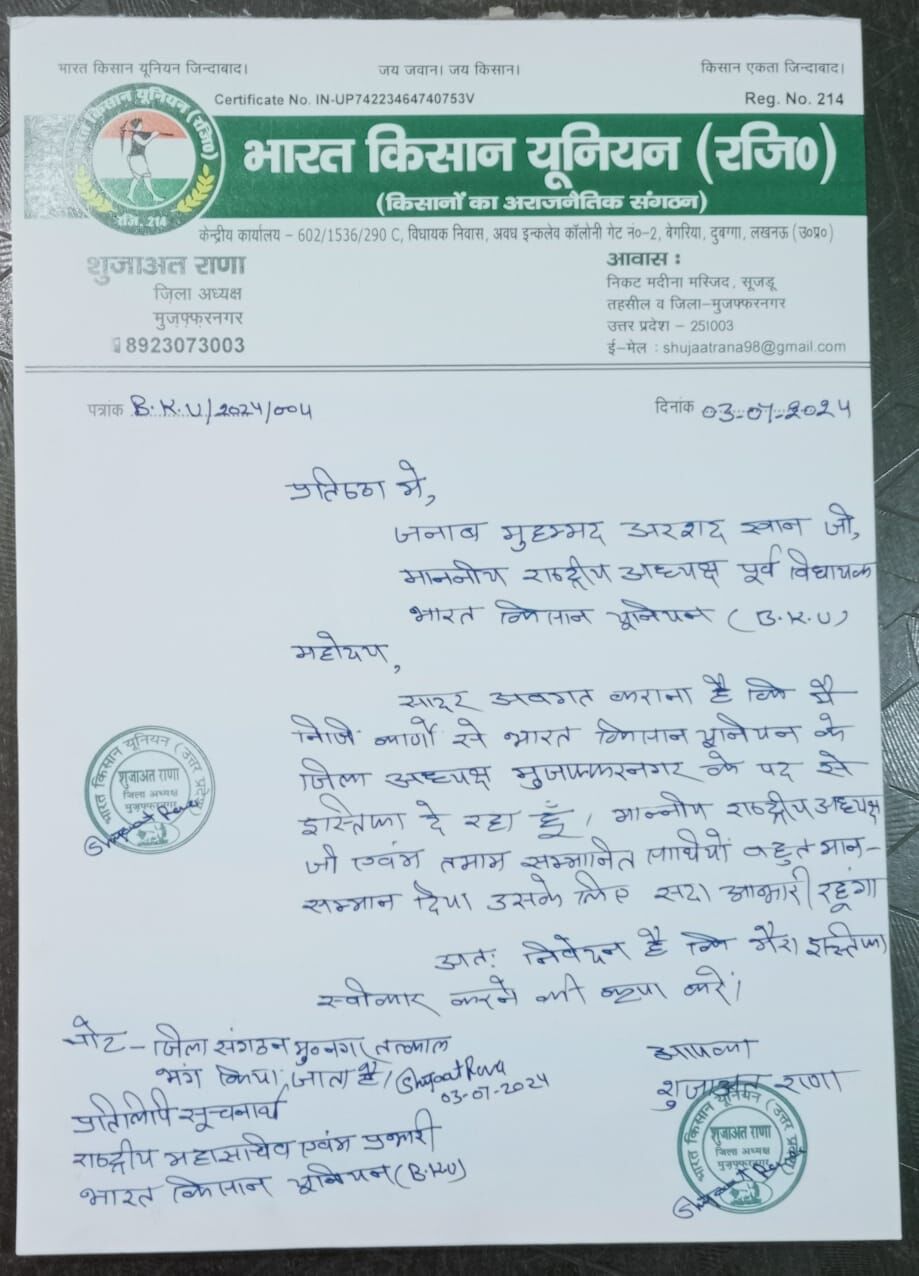 भारत किसान यूनियन जिन्दाबाद।
जय जवान। जय किसान।
किसान एकता जिन्दाबाद।
Certificate No. IN-UP74223464740753V
Reg. No. 214
भारत किसान यूनियन (रजि०)
रजि. 214
भारत किसान यूनियन (रजि०)
(किसानों का अराजनैतिक संगठन)
केन्द्रीय कार्यालय – 602/1536/290 C, विधायक निवास, अवध इन्कलेव कॉलोनी गेट नं०-2, बेगरिया, दुबग्गा, लखनऊ (उ०प्र०)
शुजाअत राणा
ज़िला अध्यक्ष
मुज़फ़्फ़रनगर
8923073003
आवास :
निकट मदीना मस्जिद, सूजडू
तहसील व जिला–मुजफ्फरनगर
उत्तर प्रदेश – 251003
ई–मेल : shujaatrana98@gmail.com
पत्रांक B.K.U/2024/004
दिनांक 03-07-2024
प्रतिष्ठा मे,
जनाब मुहम्मद अरशद खान जी,
माननीय राष्ट्रीय अध्यक्ष पूर्व विधायक
भारत किसान यूनियन (B.K.U)
महोदय,
सादर अवगत कराना है कि मै
निजि कार्णो से भारत किसान यूनियन के
जिला अध्यक्ष मुजफ्फरनगर के पद से
इस्तिफा दे रहा हूँ। मान्नीय राष्ट्रीय अध्यक्ष
जी एवंम तमाम सम्मानित साथियो बहुत मान-
सम्मान दिया उसके लिए सदा आभारी रहूंगा
अत: निवेदन है कि मेरा इस्तिफा
स्वीकार करने की कृपा करें।
भारत किसान यूनियन (उत्तर प्रदेश)
शुजाअत राणा
जिला अध्यक्ष
मुजफ्फरनगर
Shujaat Rana
नोट - जिला संगठन मु०नगर तत्काल
भंग किया जाता है। Shujaat Rana
03-07-2024
प्रतिलिपि सूचनार्थ
राष्ट्रीय महासचिव एवंम प्रभारी
भारत किसान यूनियन (B.K.U)
आपका
शुजाअत राणा
भारत किसान यूनियन (उत्तर प्रदेश)
शुजाअत राणा
जिला अध्यक्ष
मुजफ्फरनगर
Shujaat Rana